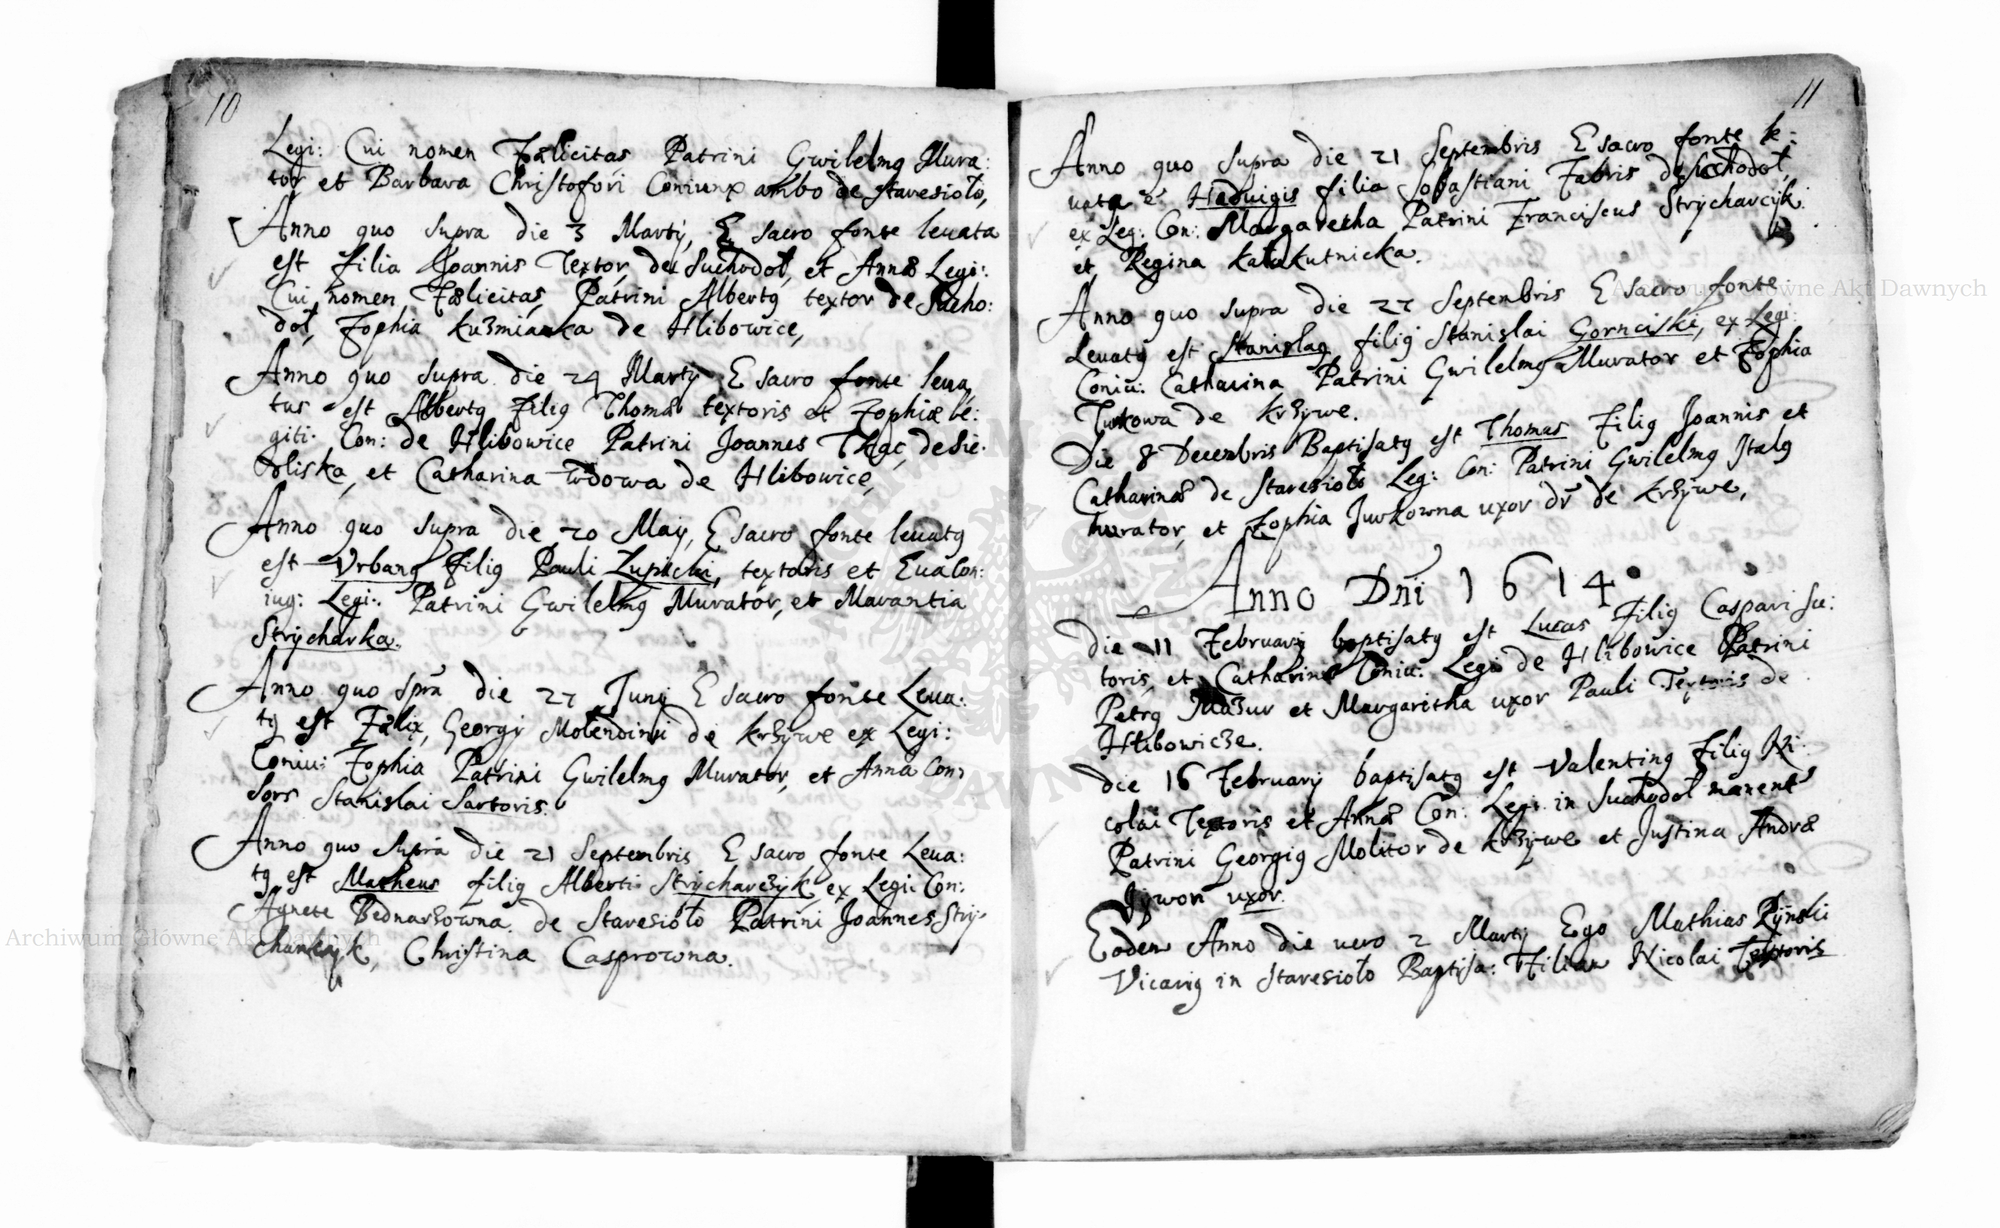 10
Legi: Cui nomen Fælicitas Patrini Gwilelmꝯ Mura:
tor et Barbara Christofori Coniunx ambo de Staresioło,
Anno quo supra die 3 Martÿ, E sacro fonte leuata
est filia Joannis Textor, de Suchodoł, et Annæ Legi:
Cui nomen Fælicitas, Patrini Albertꝯ textor de Sucho:
doł, Zophia Kuzmianka de Hlibowice,
Anno quo supra die 24 Martÿ E sacro fonte leua
tus est Albertꝯ Filiꝯ Thomæ textoris et Zophiæ le:
giti: Con: de Hlibowice Patrini Joannes Tkac, de Sie:
dliska, et Catharina wdowa de Hlibowice,
Anno quo supra die 20 Maÿ, E sacro fonte leuatꝯ
est Vrbanꝯ Filiꝯ Pauli Zupicki, textoris et Eua Con:
iug: Legi: Patrini Gwilelmꝯ Murator, et Marantia
Strycharka.
Anno quo spra die 27 Junÿ E sacro fonte Leua:
tꝯ est Fælix, Georgÿ Molendini de Krzÿwe ex Legi:
Coniu: Zophia Patrini Gwilelmꝯ Murator, et Anna Con:
sors Stanislai Sartoris.
Anno quo supra die 21 Septembris E sacro fonte Leua:
tꝯ est Matheus filiꝯ Alberti Strÿcharzÿk, ex Legi: Con:
Agnete Bednarzowna de Staresioło Patrini Joannes Strÿ:
Christina Casprowna.
11
Anno quo supra die 21 Septembris E sacro fonte le:
uata ē Heduigis filia Sebastiani Fabris de Suchodoł,
ex Leg: Con: Margaretha Patrini Franciscus Strÿcharcÿk
et Regina Kałakutnicka.
Anno quo supra die 27 Septembris E sacro fonte
Leuatꝯ est Stanislaꝯ filiꝯ Stanislai Gornciski, ex Legi:
Coniu: Catharina Patrini Gwilelmꝯ Murator et Zophia
Turkowa de Krzÿwe.
Die 8 Decembris Baptisatꝯ est Thomas Filiꝯ Joannis et
Catharinæ de Staresioło Leg: Con: Patrini Gwilelmꝯ Italꝯ
murator, et Zophia Jurkowna uxor de Krzÿwe,
Anno Dni 1614
die 11 Februarÿ baptisatꝯ est Lucas Filiꝯ Caspari Su:
toris, et Catharinæ Coniu: Legi: de Hlibowice Patrini
Petrꝯ Mazur et Margaritha uxor Pauli Textoris de
Hlibowicze.
die 16 Februarÿ baptisatꝯ est Valentinꝯ Filiꝯ Ni:
colai Textoris et Annæ Con: Legi: in Suchodoł manent
Patrini Georgiꝯ Molitor de Krzÿwe et Justina Andræ
uxor.
Eodem Anno die uero 2 Martÿ Ego Mathias Rÿnski
Vicariꝯ in Staresioło Baptisa: Filiam Nicolai Textoris
Archiwum Główne Akt Dawnych
Archiwum Główne Akt Dawnych